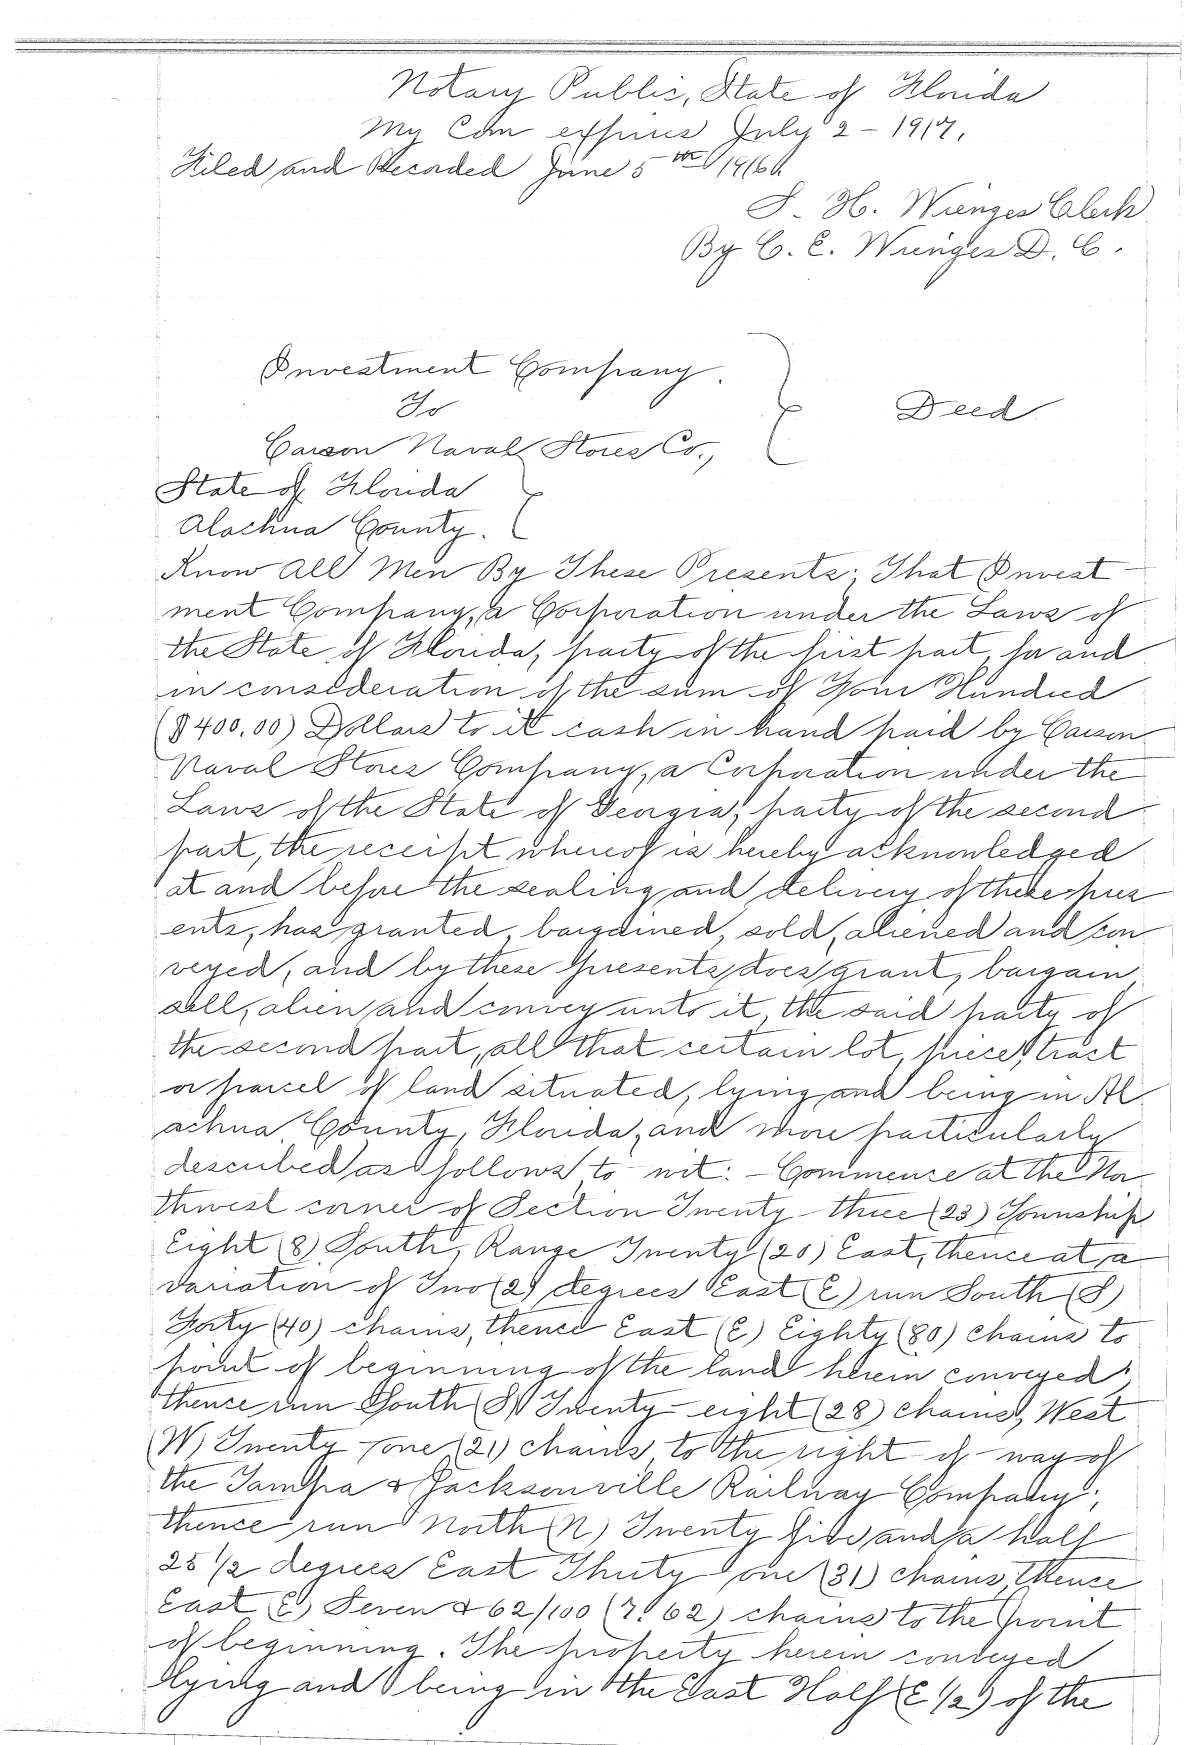 Notary Public, State of Florida
My Com expires July 2 - 1917.
Filed and Recorded June 5th 1916
S. H. Wienges Clerk
By C. E. Wienges D. C.
Investment Company.
To
Deed
Carson Naval Stores Co.,
State of Florida
Alachua County.
Know All Men By These Presents; That Invest-
ment Company, a Corporation under the Laws of
the State of Florida, party of the first part, for and
in consideration of the sum of Four Hundred
($400.00) Dollars to it cash in hand paid by Carson
Naval Stores Company, a Corporation under the
Laws of the State of Georgia, party of the second
part, the receipt whereof is hereby acknowledged
at and before the sealing and delivery of these pres
ents, has granted, bargained, sold, aliened and con
veyed, and by these presents does grant, bargain,
sell, alien and convey unto it, the said party of
the second part, all that certain lot, piece, tract
or parcel of land situated, lying and being in Al
achua County, Florida, and more particularly
described as follows to - wit: - Commence at the Nor
thwest corner of Section Twenty - three (23) Township
Eight (8) South, Range Twenty (20) East, thence at a
variation of Two (2) degrees East (E) run South (S)
Forty (40) chains, thence East (E) Eighty (80) chains to
point of beginning of the land herein conveyed;
thence run South (S) Twenty - eight (28) chains, West
(W) Twenty - one (21) chains to the right - of - way of
the Tampa & Jacksonville Railway Company;
thence run North (N) Twenty five and a half
25 1/2 degrees East Thirty one (31) chains, thence
East (E) Seven & 62/100 (7.62) chains to the point
of beginning. The property herein conveyed
lying and being in the East Half (E 1/2) of the